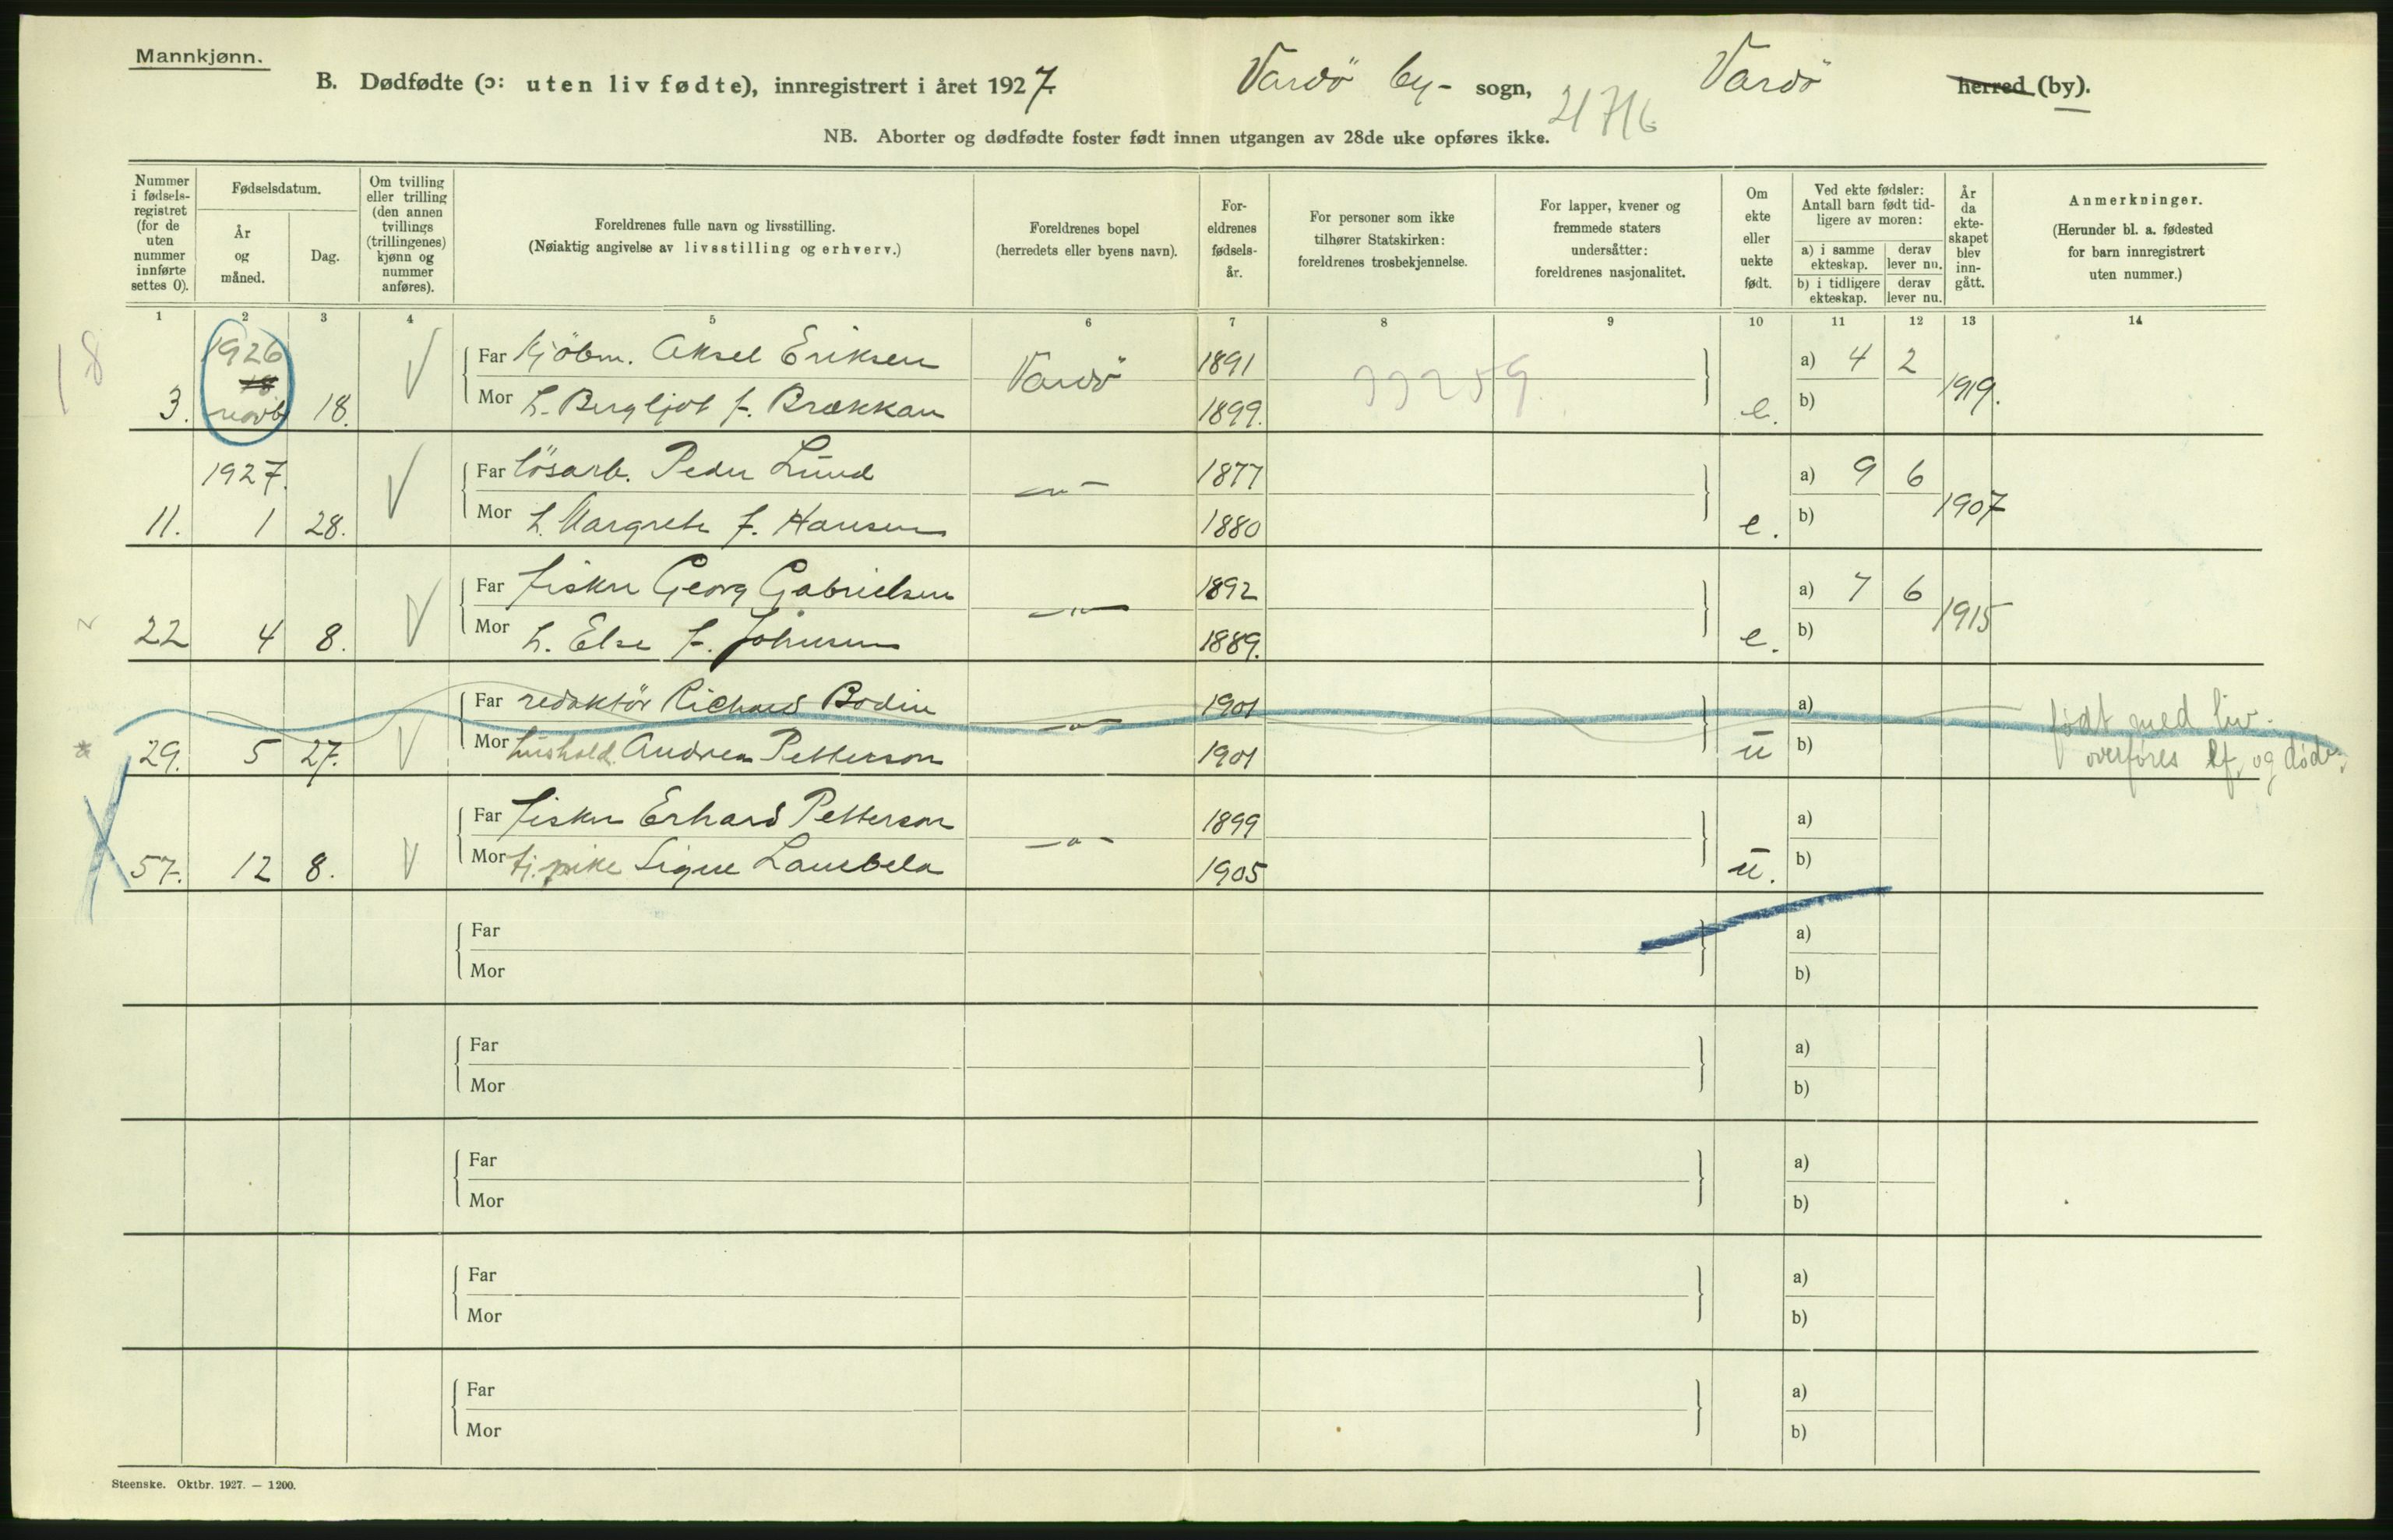 Mannkjønn.
B. Dødfødte (ɔ: uten liv fødte), innregistrert i året 1927. Vardö by- sogn, Vardö herred (by).
21716
NB. Aborter og dødfødte foster født innen utgangen av 28de uke opføres ikke.
Nummer i fødsels-registret (for de uten nummer innførte settes 0).
Fødselsdatum.
År og måned.
Dag.
Om tvilling eller trilling (den annen tvillings (trillingenes) kjønn og nummer anføres).
Foreldrenes fulle navn og livsstilling.
(Nøiaktig angivelse av livsstilling og erhverv.)
Foreldrenes bopel
(herredets eller byens navn).
For-eldrenes fødsels-år.
For personer som ikke tilhører Statskirken: foreldrenes trosbekjennelse.
For lapper, kvener og fremmede staters undersåtter: foreldrenes nasjonalitet.
Om ekte eller uekte født.
Ved ekte fødsler: Antall barn født tid-ligere av moren:
a) i samme ekteskap.
derav lever nu.
b) i tidligere ekteskap.
derav lever nu.
År da ekte-skapet blev inn-gått.
Anmerkninger.
(Herunder bl. a. fødested for barn innregistrert uten nummer.)
1 2 3 4 5 6 7 8 9 10 11 12 13 14
18
1926
Far kjöbm. Aksel Eriksen Vardö 1891 a) 4 2
3. novb 18. Mor h. Bergljot f. Brækkan 1899. e. b) 1919.
1927.
Far lösarb. Peder Lund —"— 1877 a) 9 6
11. 1 28. Mor h. Margrete f. Hansen 1880 e. b) 1907
Far fisker Georg Gabrielsen —"— 1892 a) 7 6
22 4 8. Mor h. Else f. Johnsen 1889. e. b) 1915
Far redaktör Richard Bodin —"— 1901 a) født med liv.
29. 5 27. Mor hushold. Andrea Petterson 1901 u b) overføres lf. og døde.
Far fisker Erhard Petterson —"— 1899 a)
57. 12 8. Mor tj. pike Signe Lambela 1905 u. b)
Far a)
Mor b)
Far a)
Mor b)
Far a)
Mor b)
Far a)
Mor b)
Far a)
Mor b)
Steenske. Oktbr. 1927. — 1200.